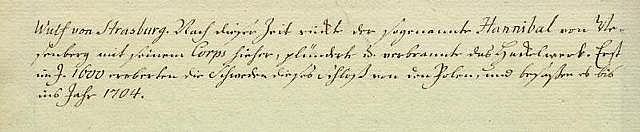 Wulf von Strasburg. Nach dieser Zeit rückte der sogenannte Hannibal von We-
senberg mit seinem Corps hieher, plünderte u. verbrannte das Hackelwerk. Erst
im J. 1600 eroberten die Schweden dieses Schloß von den Polen, und besaßen es bis
ins Jahr 1704.